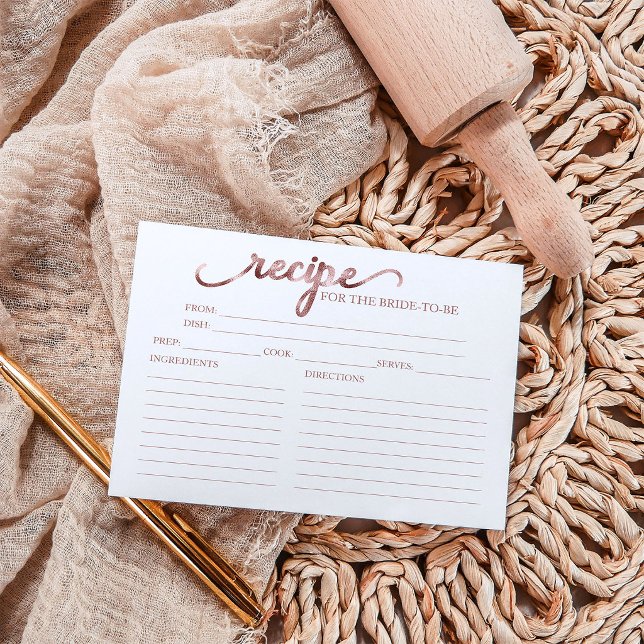 recipe
FOR THE BRIDE-TO-BE
FROM:
DISH:
PREP: COOK: SERVES:
INGREDIENTS DIRECTIONS